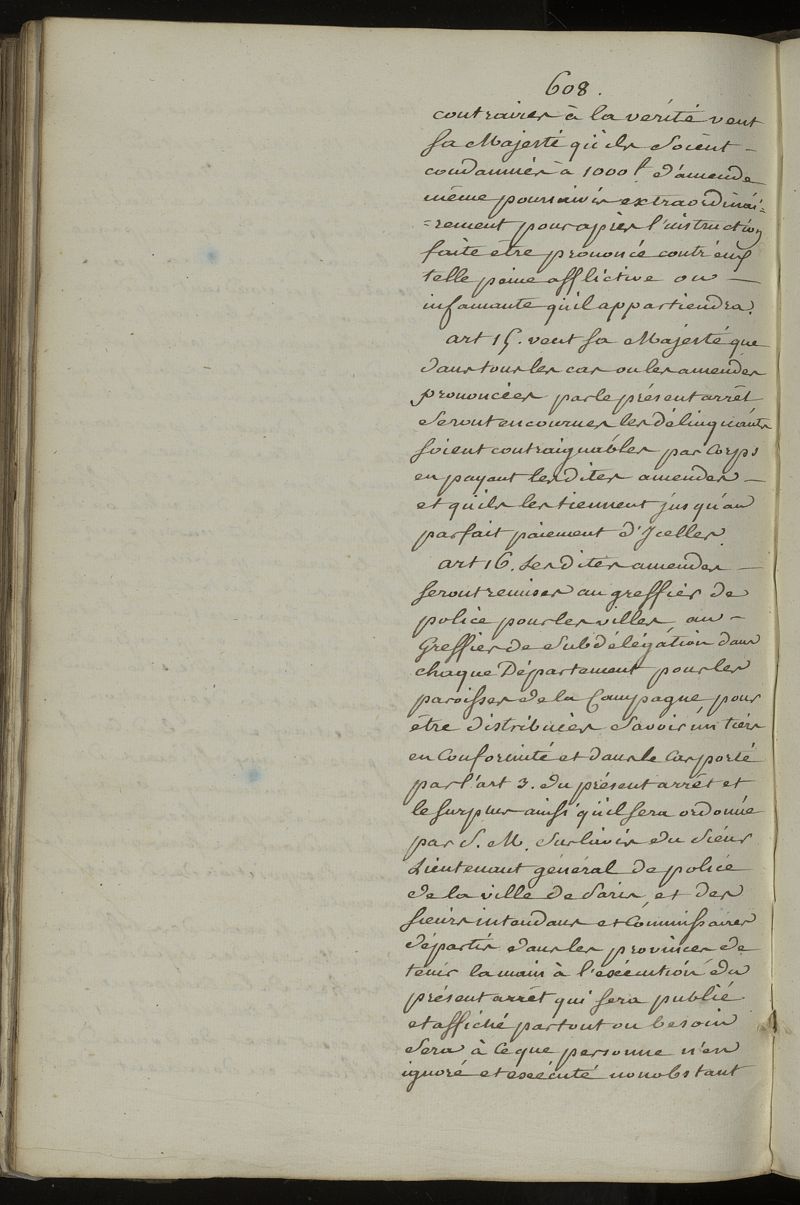 608.
contraires à la vérité veut
sa Majesté qu'ils soient -
condamnés à 1000 l d'amende
même poursuivis extraordinai-
=rement pour après l'instruction
faite être prononcé contr'eux
telle peine afflictive ou -
infamante qu'il appartiendra.
art 15. veut sa Majesté que
dans tous les cas ou les amendes
prononcées par le présent arrêt
seront encourues les délinquants
soient contraignables par Corps
en payant lesdites amendes -
et qu'ils les tiennent jusqu'au
parfait paiement d'Icelles
art 16. Lesdites amendes -
seront remises au greffier de
police pour les villes au -
Greffier de Subdélégation dans
chaque Département pour les
paroisses de la Campagne pour
être distribuées Savoir un tiers
en Conformité et dans le Cas porté
par l'art 3. du présent arrêt et
le surplus ainsi qu'il sera ordonné
par S. M. sur l'avis du Siéur
Lieutenant général de police
de la ville de Paris, et des
sieurs intendans et Commissaires
départis dans les provinces de
tenir la main à l'exécution du
présent arrêt qui sera publié
et affiché partout ou besoin
Sera à Ce que personne n'en
ignoré et éxécuté nonobstant